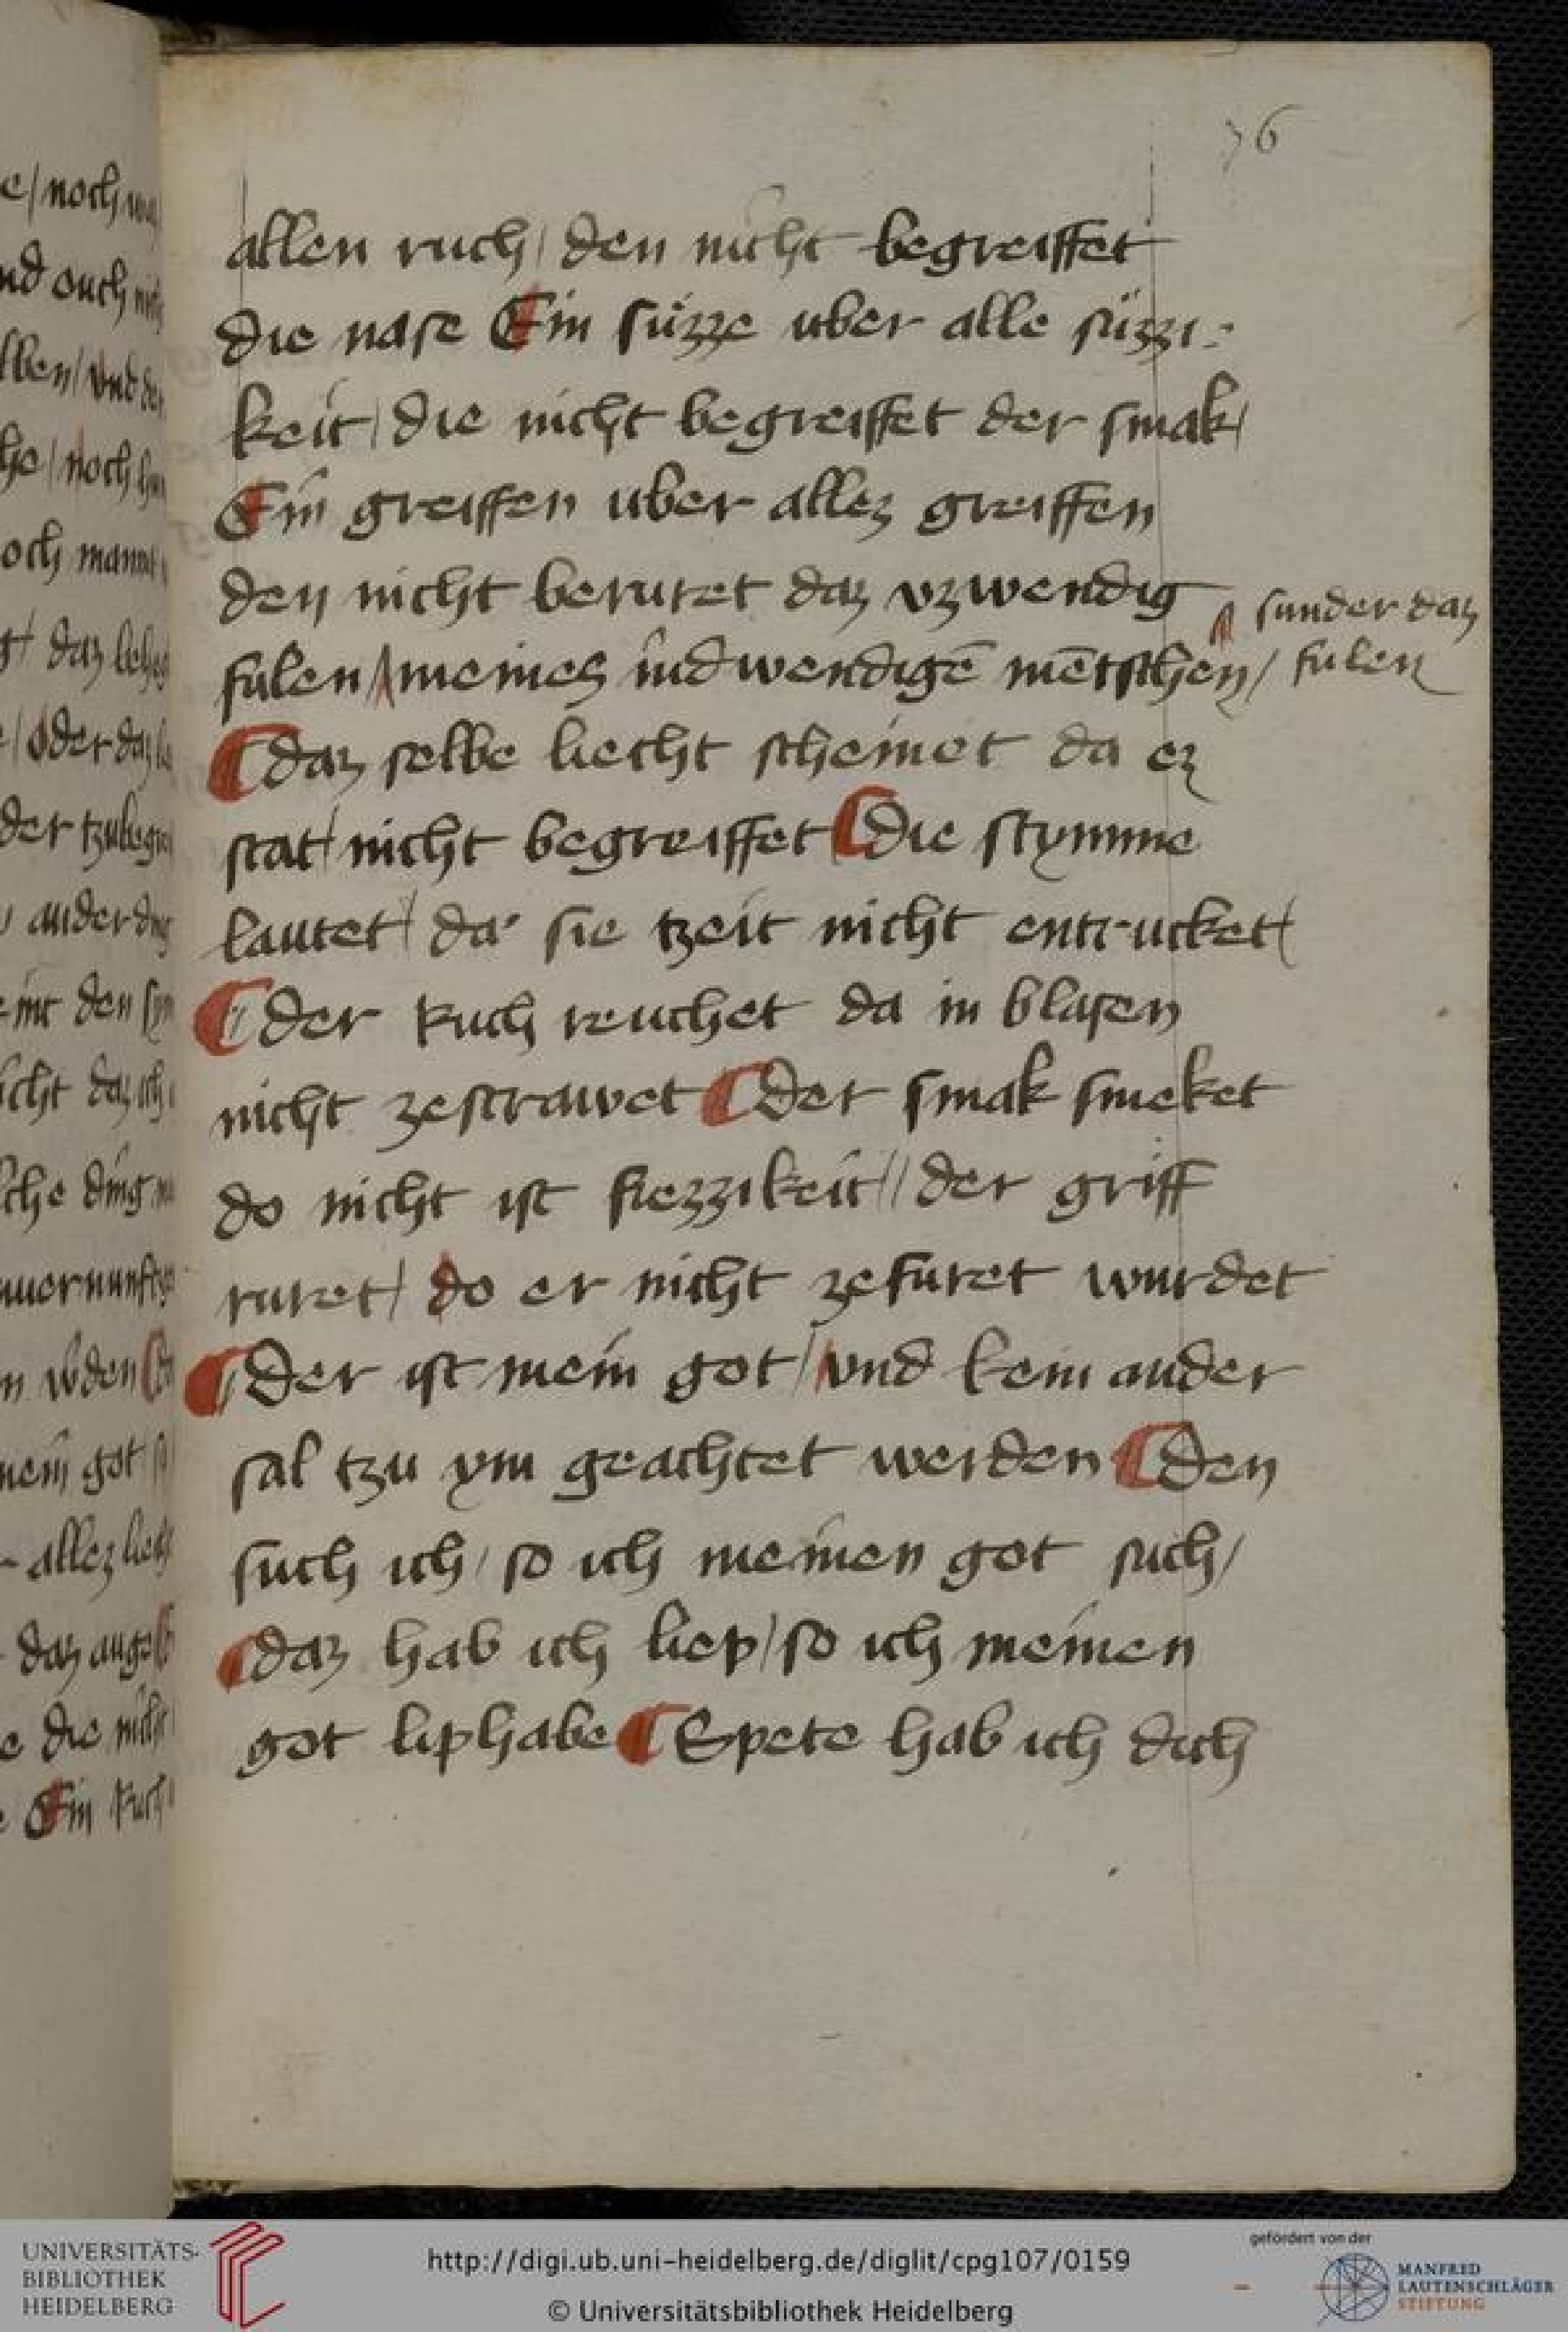 76
allen ruch / den nicht begreiffet
die nase Ein süzze uber alle süzzi-
keit / die nicht begreiffet der smak /
Ein greiffen uber allez greiffen
den nicht berutet daz vzwendig
sunder daz
fulen / meines indwendigē mētschen /
fulen
daz selbe liecht scheinet da ez
stat / nicht begreiffet die stymme
lautet / da sie tzeit nicht entrucket /
der Ruch reuchet da in blasen
nicht zestrawet der smak smeket
do nicht ist fiezzikeit // der griff
ruret / do er nicht zefuret wurdet
Der ist mein got / vnd kein ander
sal tzu ym geachtet werden den
such ich / so ich meinen got such /
daz hab ich liep / so ich meinen
got liphabe Spete hab ich dich
e / noch
nd ouch
lben / vnd der
he / noch
och
daz
/ oder daz
der
ander
den
icht daz ich
che ding
got
allez
daz auge
e die nicht
Ein Ruch
UNIVERSITÄTS-
BIBLIOTHEK
HEIDELBERG
http://digi.ub.uni-heidelberg.de/diglit/cpg107/0159
© Universitätsbibliothek Heidelberg
gefördert von der
MANFRED
LAUTENSCHLÄGER
STIFTUNG